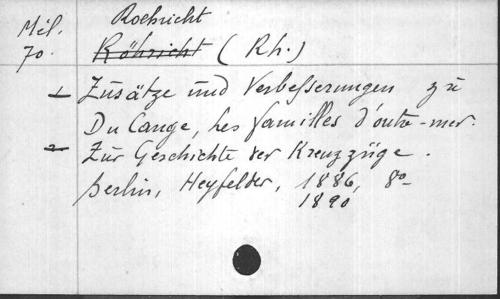 Roehricht
Mél. 70. Röhricht (Rh.)
1 Zusätze und Verbesserungen zu
Du Cange, Les familles d'outre-mer.
2 Zur Geschichte der Kreuzzüge.
Berlin, Heyfelder, 1886, 8º
1890